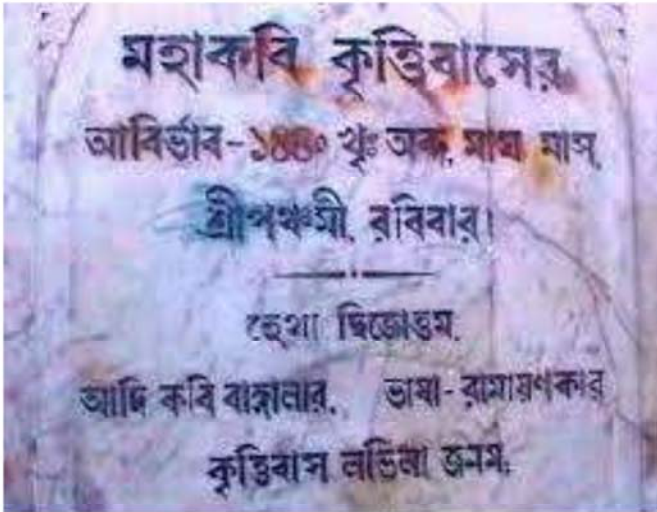 মহাকবি কৃত্তিবাসের
আবির্ভাব-১৪৪০ খৃঃ অব্দ, মাঘ মাস,
শ্রীপঞ্চমী, রবিবার।
হেথা দ্বিজোত্তম,
আদি কবি বাঙ্গালার, ভাষা-রামায়ণকার
কৃত্তিবাস লভিলা জনম,